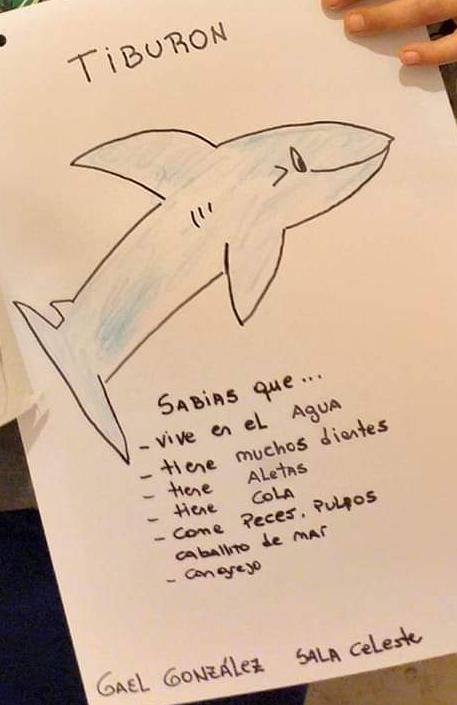 TiBURON
SABIAS que...
- vive en el AGUA
- tiene muchos dientes
- tiene ALetAS
- tiene COLA
- come Peces, PULPOS
caballito de mar
- cangrejo
GAEL GONZÁLEZ SALA Celeste